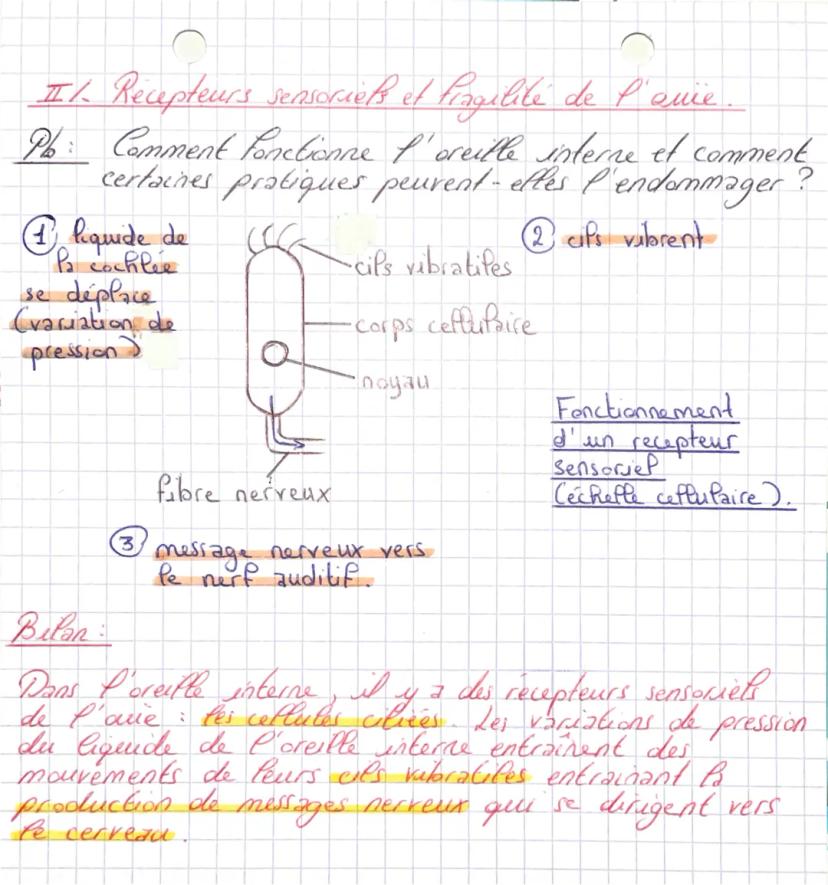 II/. Récepteurs sensoriels et fragilité de l'ouïe.
Pb : Comment fonctionne l'oreille interne et comment
certaines pratiques peuvent-elles l'endommager ?
1 liquide de
la cochlée
se déplace
(variation de
pression)
2 cils vibrent
cils vibratiles
corps cellulaire
noyau
Fonctionnement
d'un recepteur
sensoriel
(échelle cellulaire).
fibre nerveux
3 message nerveux vers
le nerf auditif.
Bilan :
Dans l'oreille interne, il y a des récepteurs sensoriels
de l'ouie : les cellules ciliées. Les variations de pression
du liquide de l'oreille interne entraînent des
mouvements de leurs cils vibratiles entrainant la
production de messages nerveux qui se dirigent vers
le cerveau.